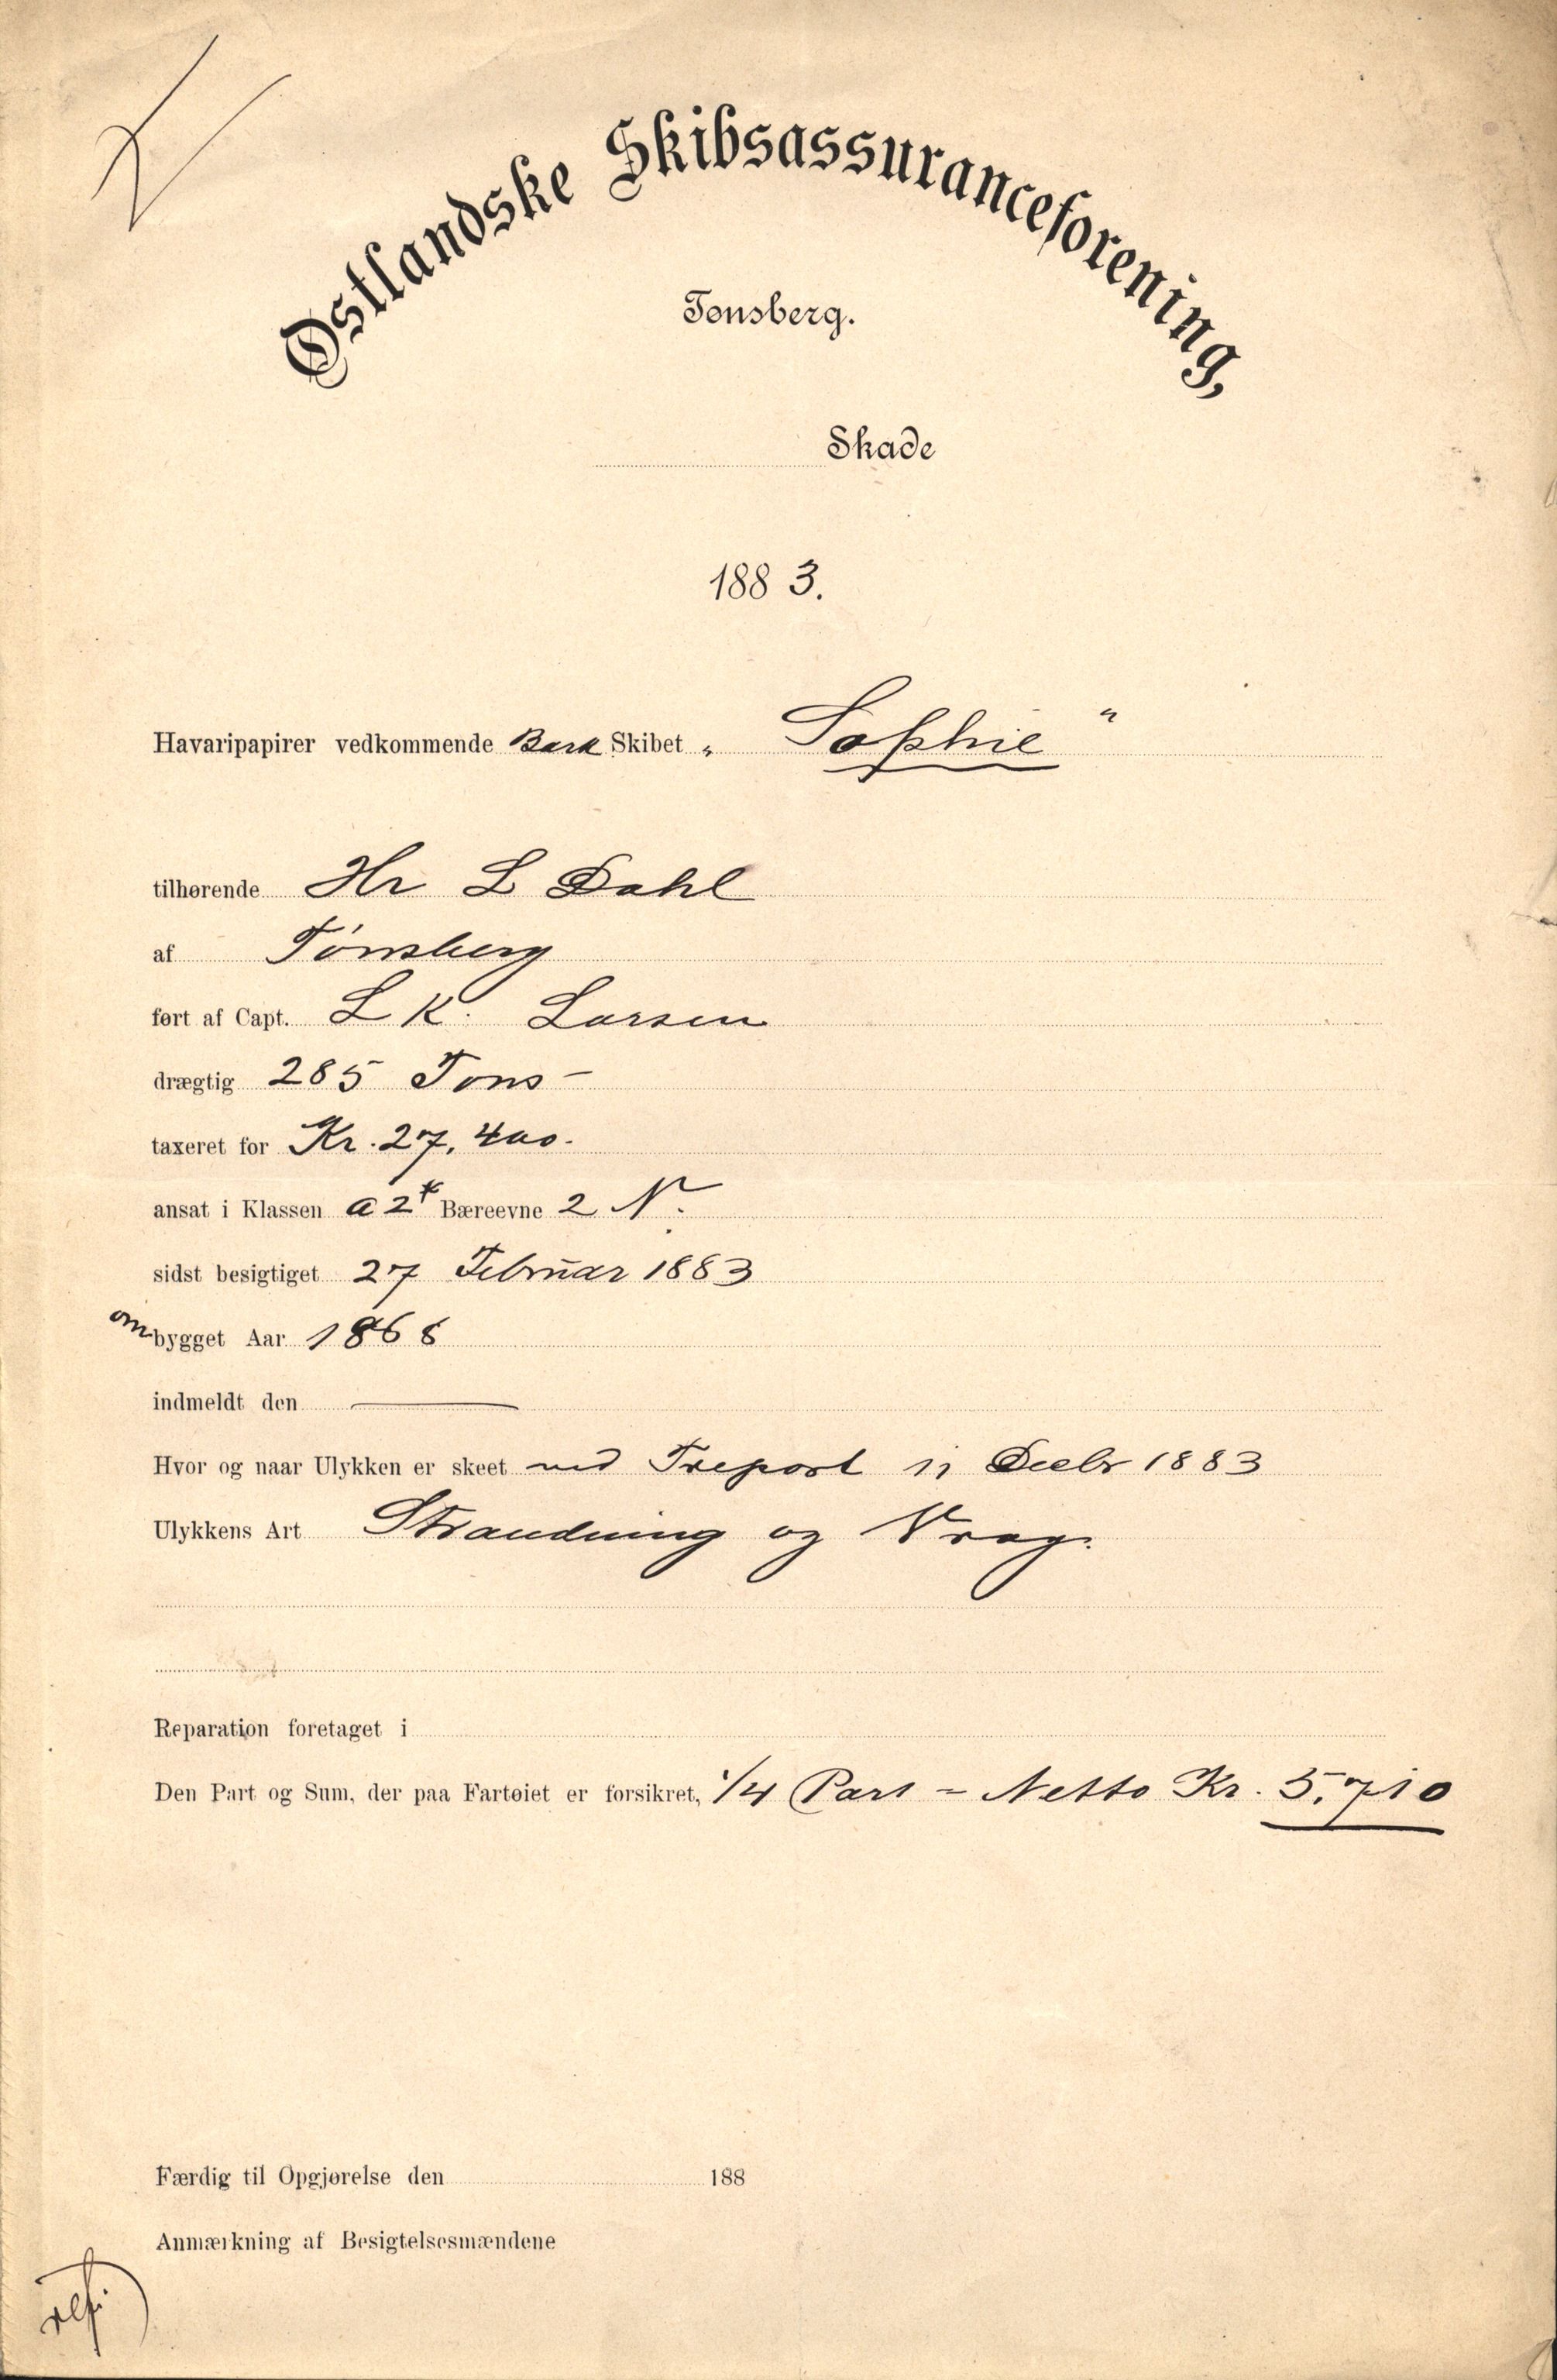 Østlandske Skibsassuranceforening,
Tønsberg.
Skade
1883.
Havaripapirer vedkommende Bark Skibet „ Sophie "
tilhørende Hr L Dahl
af Tønsberg
ført af Capt. L K. Larsen
drægtig 285 Tons –
taxeret for Kr. 27,400.
ansat i Klassen a 2 Bæreevne 2 N.
sidst besigtiget 27 Februar 1883
om bygget Aar 1868
indmeldt den —
Hvor og naar Ulykken er skeet ved Treport 11 Decbr 1883
Ulykkens Art Stranding og Vrag.
Reparation foretaget i
Den Part og Sum, der paa Fartøiet er forsikret, 1/4 Part = Netto Kr. 5,710
Færdig til Opgjørelse den 188
Anmærkning af Besigtelsesmændene